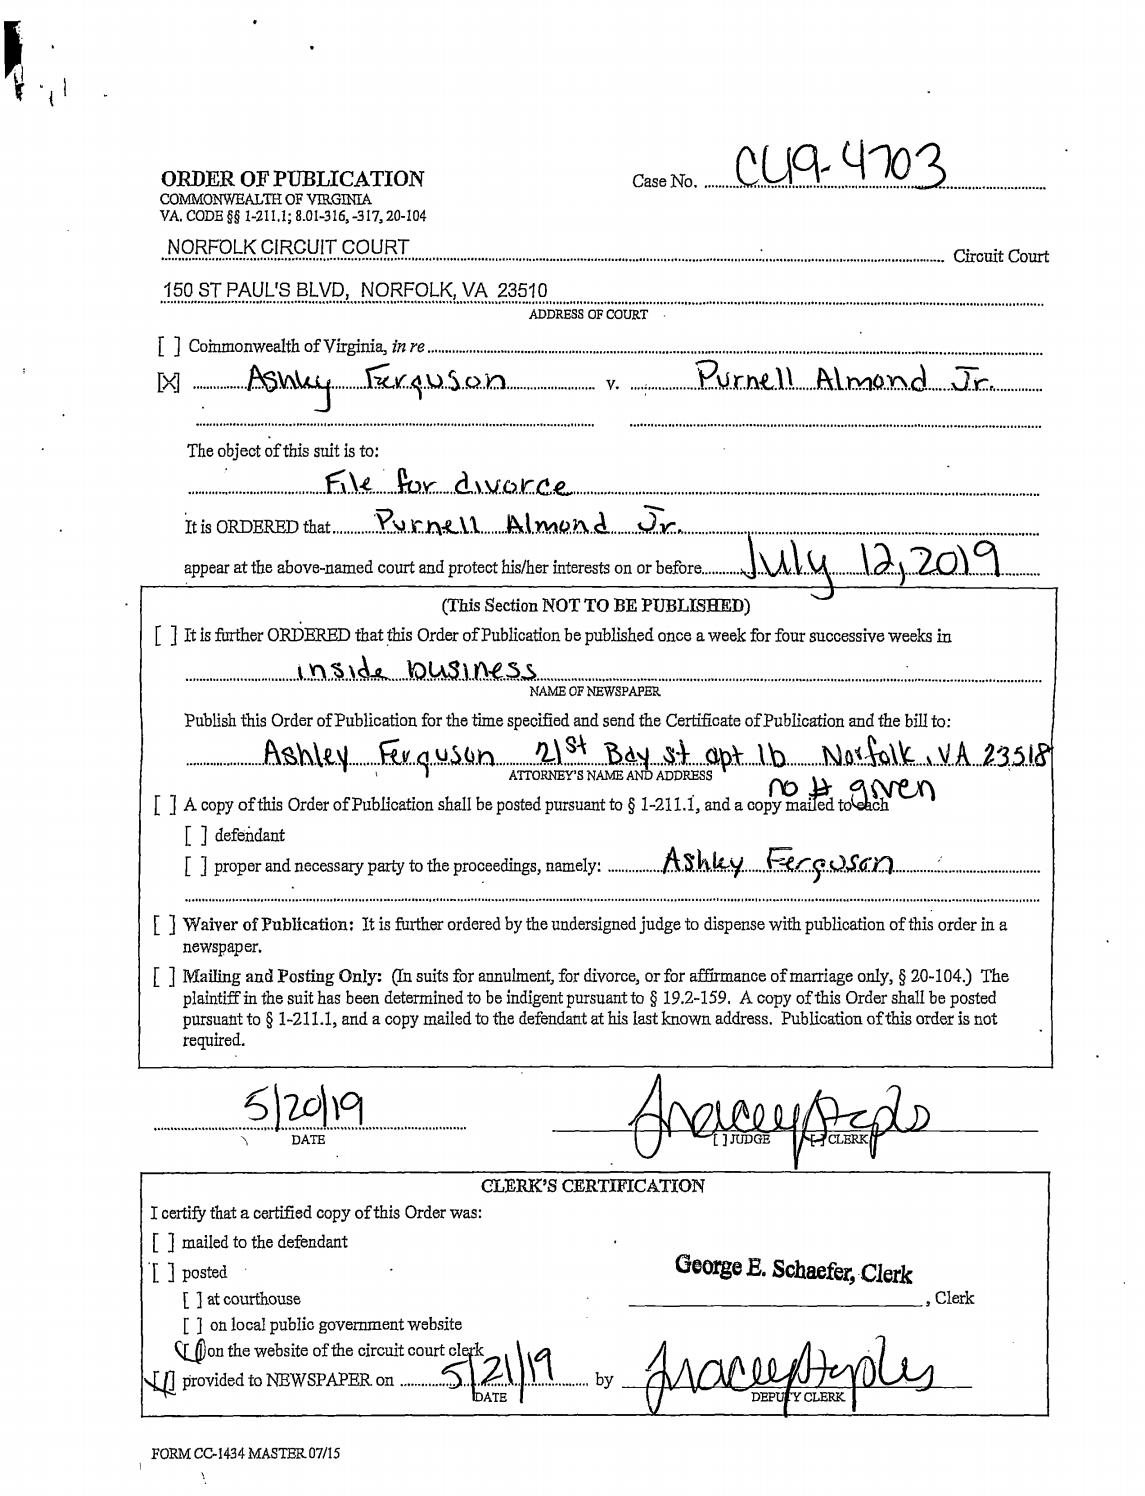 ORDER OF PUBLICATION
Case No. CL19-4703
COMMONWEALTH OF VIRGINIA
VA. CODE §§ 1-211.1; 8.01-316, -317, 20-104
NORFOLK CIRCUIT COURT Circuit Court
150 ST PAUL'S BLVD, NORFOLK, VA 23510
ADDRESS OF COURT
[ ] Commonwealth of Virginia, in re
[X] Ashley Ferguson v. Purnell Almond Jr.
The object of this suit is to:
File for divorce
It is ORDERED that Purnell Almond Jr.
appear at the above-named court and protect his/her interests on or before July 12, 2019
(This Section NOT TO BE PUBLISHED)
[ ] It is further ORDERED that this Order of Publication be published once a week for four successive weeks in
inside business
NAME OF NEWSPAPER
Publish this Order of Publication for the time specified and send the Certificate of Publication and the bill to:
Ashley Ferguson 21st Bay st apt 1b Norfolk, VA 23518
ATTORNEY'S NAME AND ADDRESS
no # given
[ ] A copy of this Order of Publication shall be posted pursuant to § 1-211.1, and a copy mailed to each
[ ] defendant
[ ] proper and necessary party to the proceedings, namely: Ashley Ferguson
[ ] Waiver of Publication: It is further ordered by the undersigned judge to dispense with publication of this order in a
newspaper.
[ ] Mailing and Posting Only: (In suits for annulment, for divorce, or for affirmance of marriage only, § 20-104.) The
plaintiff in the suit has been determined to be indigent pursuant to § 19.2-159. A copy of this Order shall be posted
pursuant to § 1-211.1, and a copy mailed to the defendant at his last known address. Publication of this order is not
required.
5/20/19
DATE
[ ] JUDGE [✓] CLERK
CLERK'S CERTIFICATION
I certify that a certified copy of this Order was:
[ ] mailed to the defendant
[ ] posted
George E. Schaefer, Clerk
[ ] at courthouse
, Clerk
[ ] on local public government website
[✓] on the website of the circuit court clerk
[✓] provided to NEWSPAPER on 5/21/19 by
DATE
DEPUTY CLERK
FORM CC-1434 MASTER 07/15